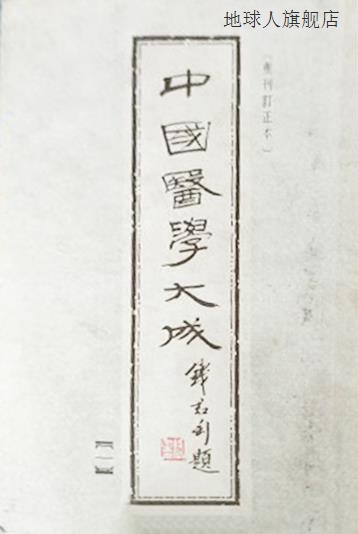 地球人旗舰店
（重刊訂正本）
中國醫學大成
錢君匋題
【一】